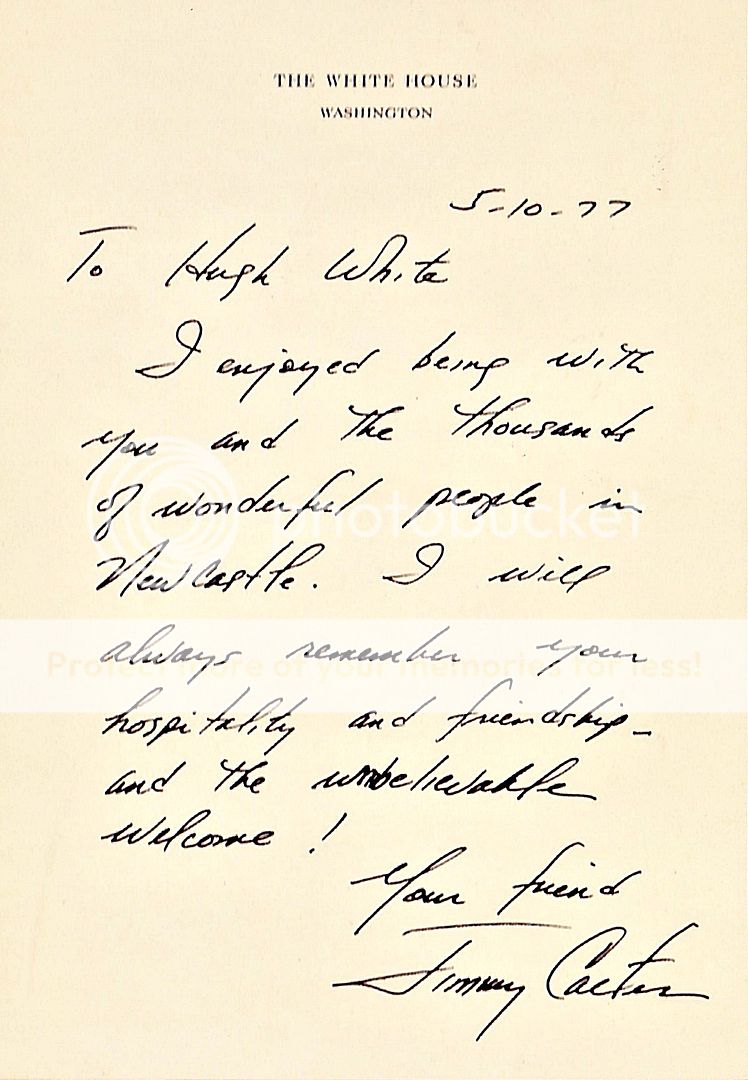 THE WHITE HOUSE
WASHINGTON
5-10-77
To Hugh White
I enjoyed being with
you and the thousands
of wonderful people in
photobucket
Newcastle. I will
always remember your
Protect more of your memories for less!
hospitality and friendship -
and the unbelievable
welcome!
Your friend
Jimmy Carter